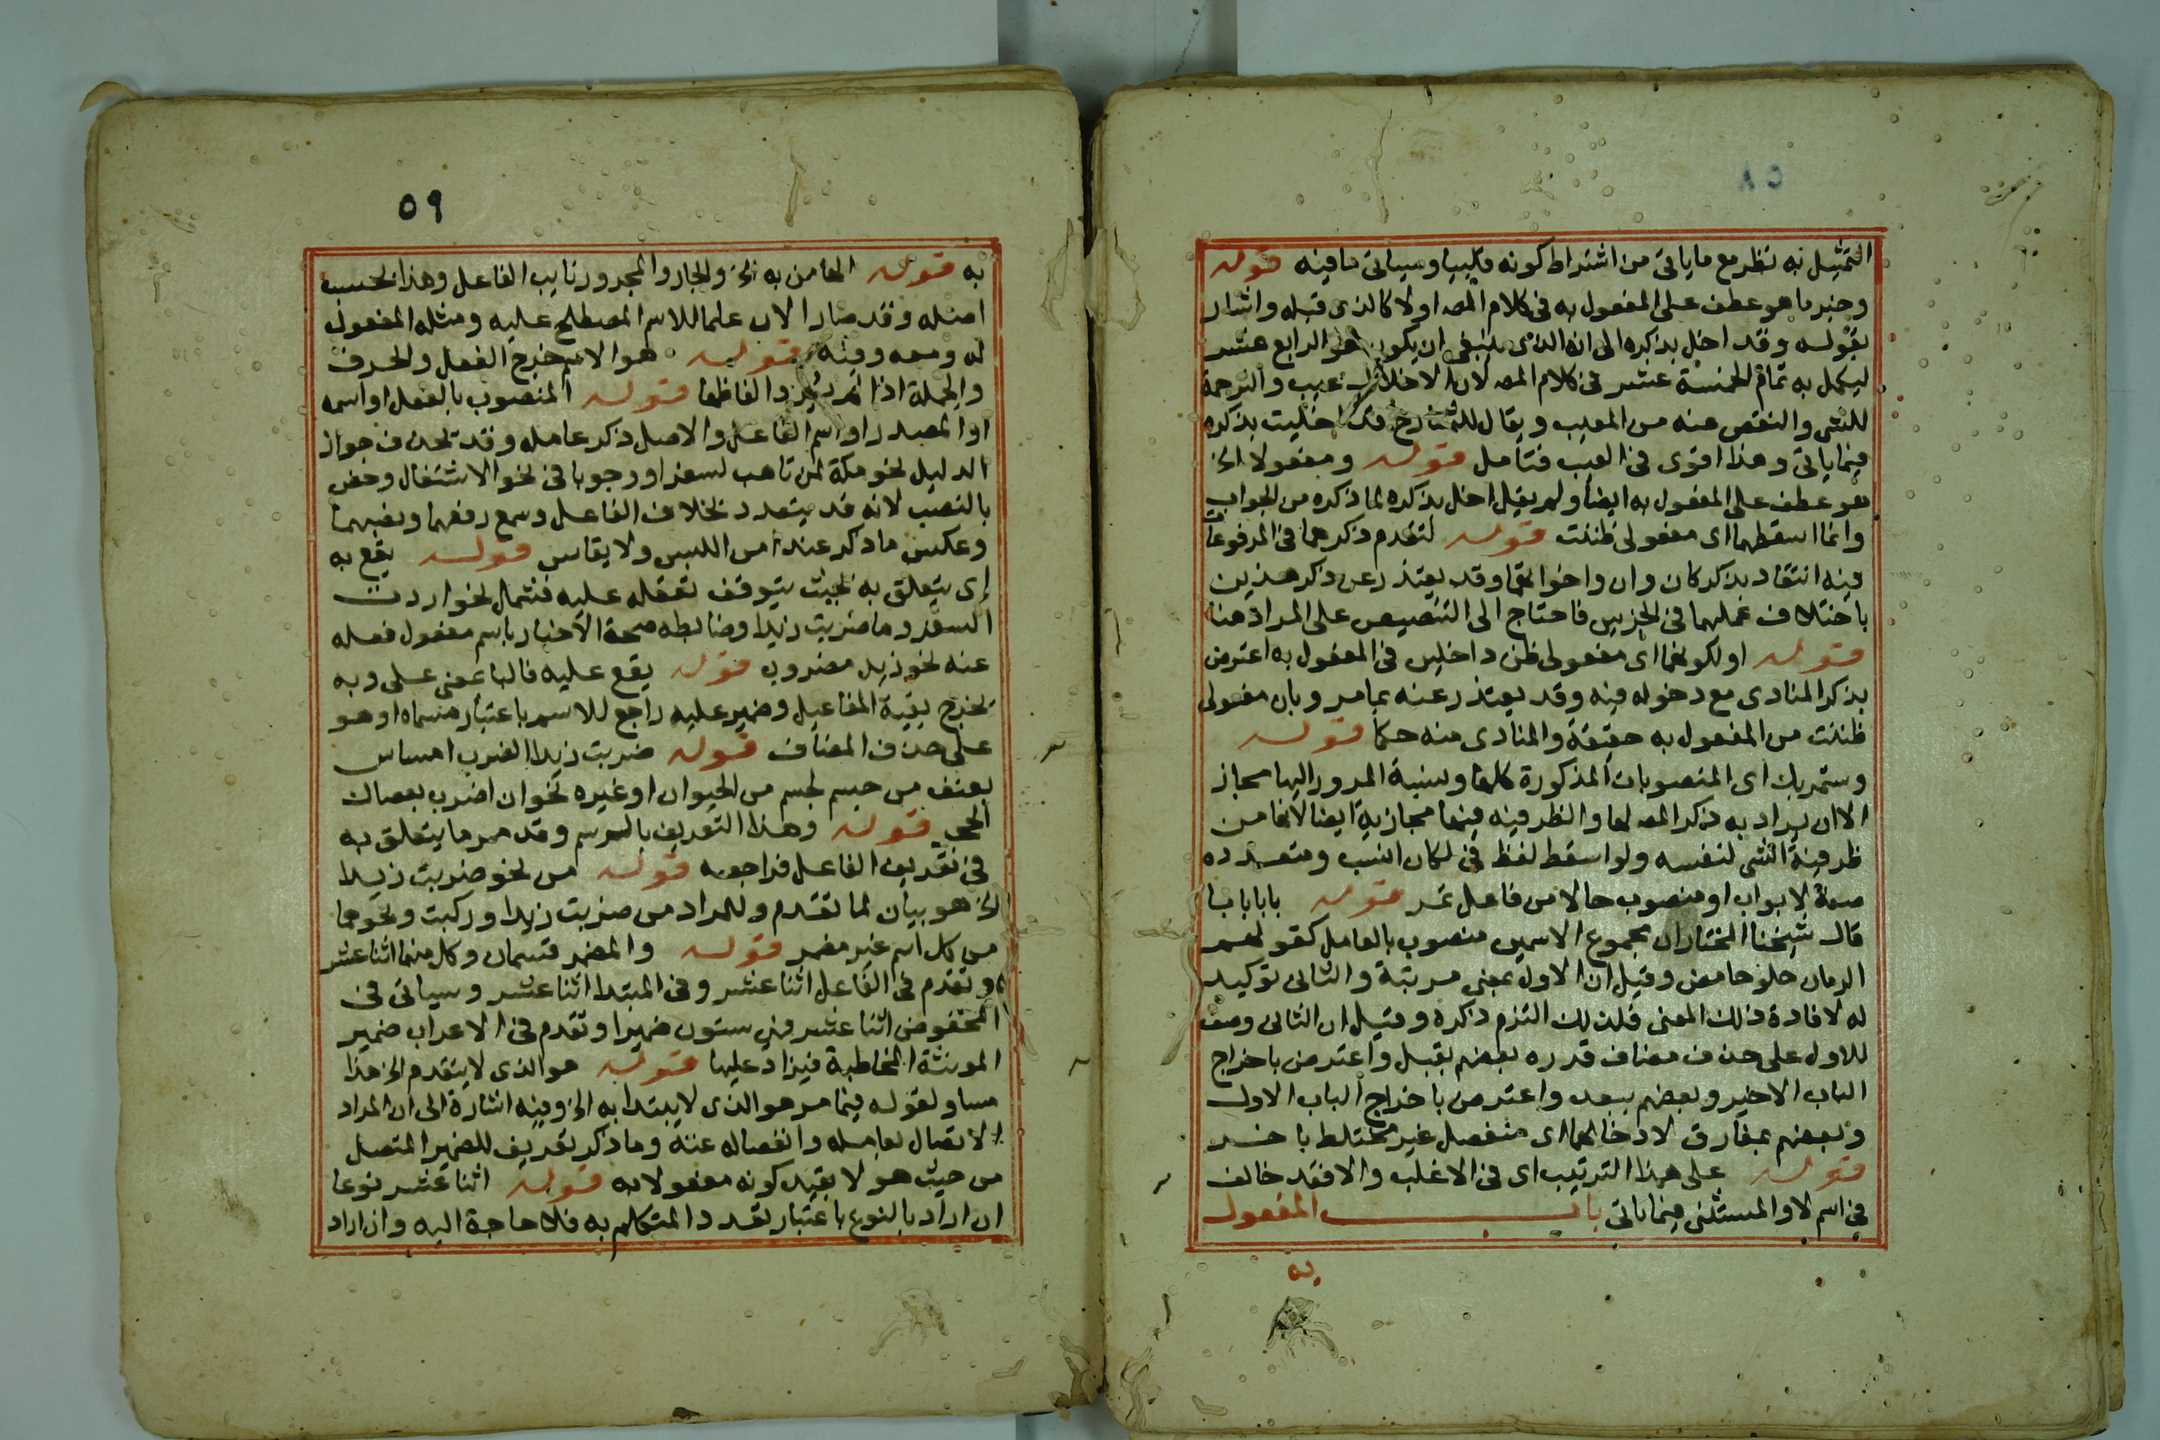 التمثيل به نظر مع ما ياتى من اشتراط كونه قلبيا وسياتى ما فيه قوله
وخبر ما هو عطف على المفعول به فى كلام المص اولا كالذى قبله واشار
بقوله وقد اخل بذكره الى انه الذى ينبغى ان يكون هو الرابع عشر
ليكمل به تمام الخمسة عشر فى كلام المص لان الاخلال عيب والترجمة
للشى والنقص عنه من المعيب ويقال للشارح قد اخليت بذكره
فيما ياتى وهذا اقوى فى العيب فتامل قوله ومفعولا الخ
هو عطف على المفعول به ايضا ولم يقل اخل بذكره لما ذكره من الجواب
وانما اسقطهما اى مفعولى ظننت قوله لتقدم ذكرهما فى المرفوعات
فيه انتقاد بذكر كان وان واخواتها وقد يعتذر عن ذكر هذين
باختلاف عملهما فى الجزيين فاحتاج الى التنصيص على المراد هنا
قوله او لكونهما اى مفعولى ظن داخلين فى المفعول به اعترض
بذكر المنادى مع دخوله فيه وقد يعتذر عنه بما مر وبان مفعولى
ظننت من المفعول به حقيقة والمنادى منه حكما قوله
وستمر بك اى المنصوبات المذكورة كلها ونسبة المرور اليها مجاز
الا ان يراد به ذكر المص لها والظرفية فيها مجازية ايضا لانها من
ظرفية الشى لنفسه ولو اسقط لفظ فى لكان انسب ومتعددة
صفة لابواب او منصوب حالا من فاعل تمر قوله بابا بابا
قال شيخنا المختار ان مجموع الاسمين منصوب بالعامل كقولهم
الرمان حلو حامض وقيل ان الاول بمعنى مرتبة والثانى توكيد
له لافادة ذلك المعنى فلذلك التزم ذكره وقيل ان الثانى وصف
للاول على حذف مضاف قدره بعضهم بقبل واعترض باخراج
الباب الاخير وبعضهم ببعد واعترض باخراج الباب الاول
وبعضهم بمفارق لادخالهما اى منفصل غير مختلط باخر
قوله على هذا الترتيب اى فى الاغلب والا فقد خالف
فى اسم لا والمستثنى فيما ياتى باب المفعول
به
٥٩
به قوله الها من به الخ والجار والمجرور نايب الفاعل وهذا بحسب
اصله وقد صار الان علما للاسم المصطلح عليه ومثله المفعول
له ومعه وفيه قوله هو الاسم خرج الفعل والحرف
والجملة اذا لم يرد الفاظها قوله المنصوب بالفعل او اسمه
او المصدر او اسم الفاعل والاصل ذكر عامله وقد يحذف جوازا
الدليل نحو مكة لمن تاهب لسفر او وجوبا فى نحو الاشتغال وخص
بالنصب لانه قد يتعدد بخلاف الفاعل وسمع رفعهما ونصبهما
وعكس ما ذكر عند امن اللبس ولا يقاس قوله يقع به
اى يتعلق به بحيث يتوقف تعقله عليه فشمل نحو اردت
السفر وما ضربت زيدا وضابطه صحة الاخبار باسم مفعول فعله
عنه نحو زيد مضروب قوله يقع عليه فالبا بمعنى على وبه
يخرج بقية المفاعيل وضمير عليه راجع للاسم باعتبار مسماه او هو
على حذف المضاف قوله ضربت زيدا الضرب امساس
بعنف من جسم لجسم من الحيوان او غيره نحو ان اضرب بعصاك
الحجر قوله وهذا التعريف بالرسم وقد مر ما يتعلق به
فى تعريف الفاعل فراجعه قوله من نحو ضربت زيدا
الخ هو بيان لما تقدم والمراد من ضربت زيدا وركبت ونحوهما
من كل اسم غير مضمر قوله والمضمر قسمان وكل منهما اثنا عشر
وتقدم فى الفاعل اثنا عشر وفى المبتدا اثنا عشر وسياتى فى
المخفوض اثنا عشر فهى ستون ضميرا وتقدم فى الاعراب ضمير
المونثة المخاطبة فيزاد عليها قوله هو الذى لا يتقدم الخ هذا
مساو لقوله فيما مر هو الذى لا يبتدا به الخ وفيه اشارة الى ان المراد
الاتصال بعامله وانفصاله عنه وما ذكر تعريف للضمير المتصل
من حيث هو لا بقيد كونه مفعولا به قوله اثنا عشر نوعا
ان اراد بالنوع باعتبار تعدد المتكلم به فلا حاجة اليه وان اراد